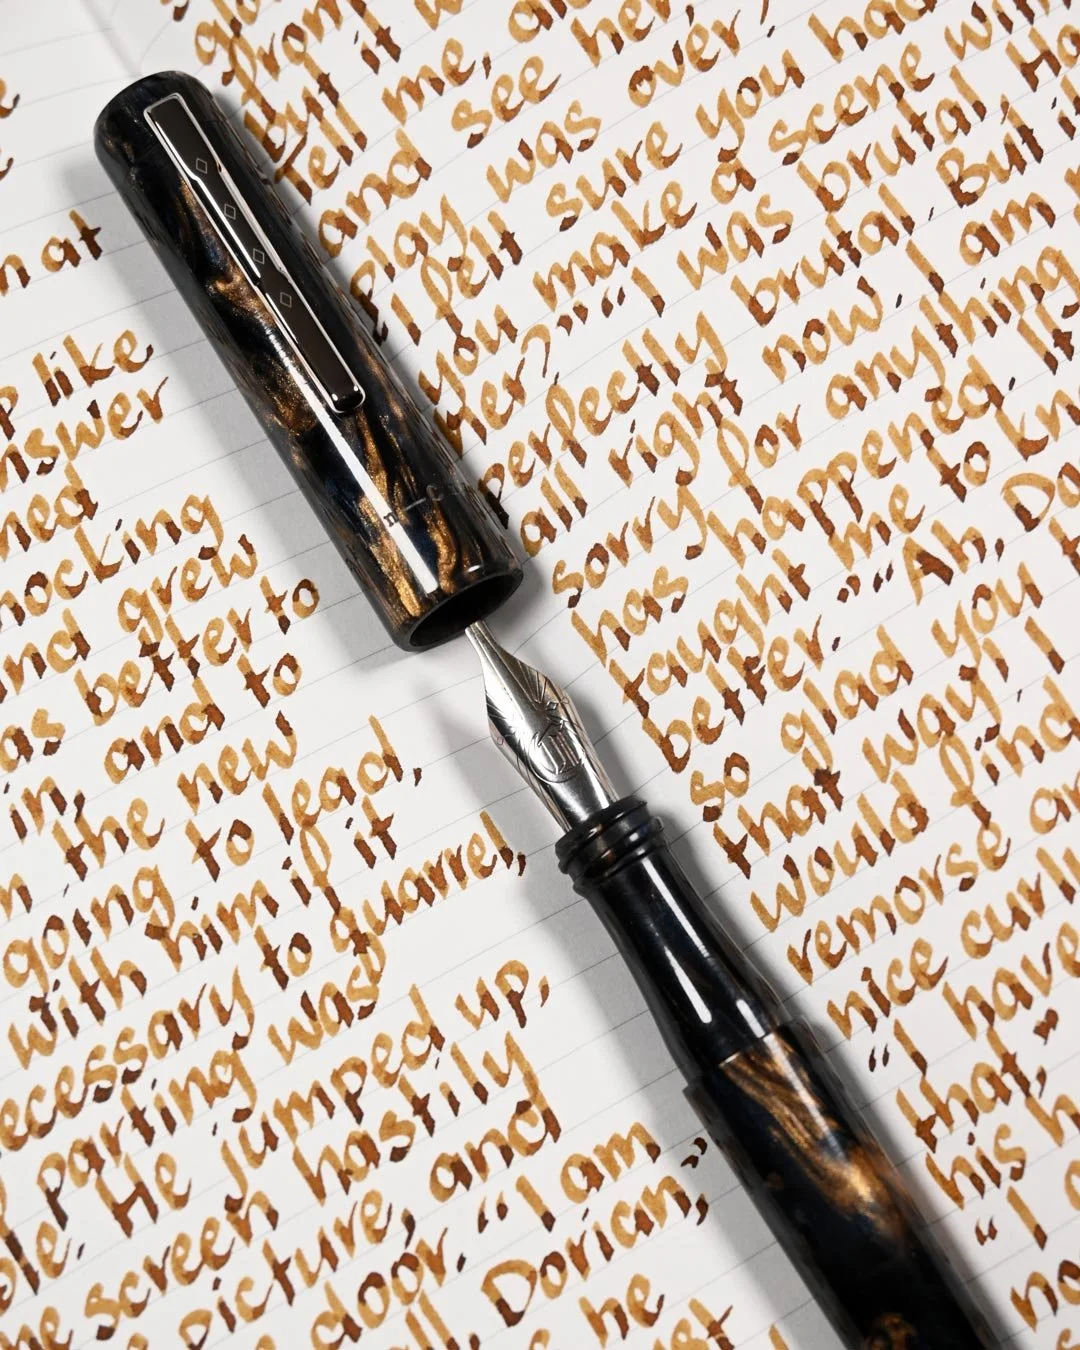 at
like
answer
ned
nocking
nd grew
as better to
in, and to
the new
going to lead,
with him if it
ecessary to quarrel,
parting was
He jumped up,
screen hastily
picture, and
door. "I am
all Dorian,
he
from
but it
tell me,
and see her
play was over?
I felt sure you had
you make a scene with
her?" "I was brutal, Ha
perfectly brutal. But i
all right now. I am
sorry for anything
has happened. It
taught me to kn
better." "Ah, Do
so glad you
that way! I
would find
remorse an
nice curly
"I have
that,"
his h
"I
no